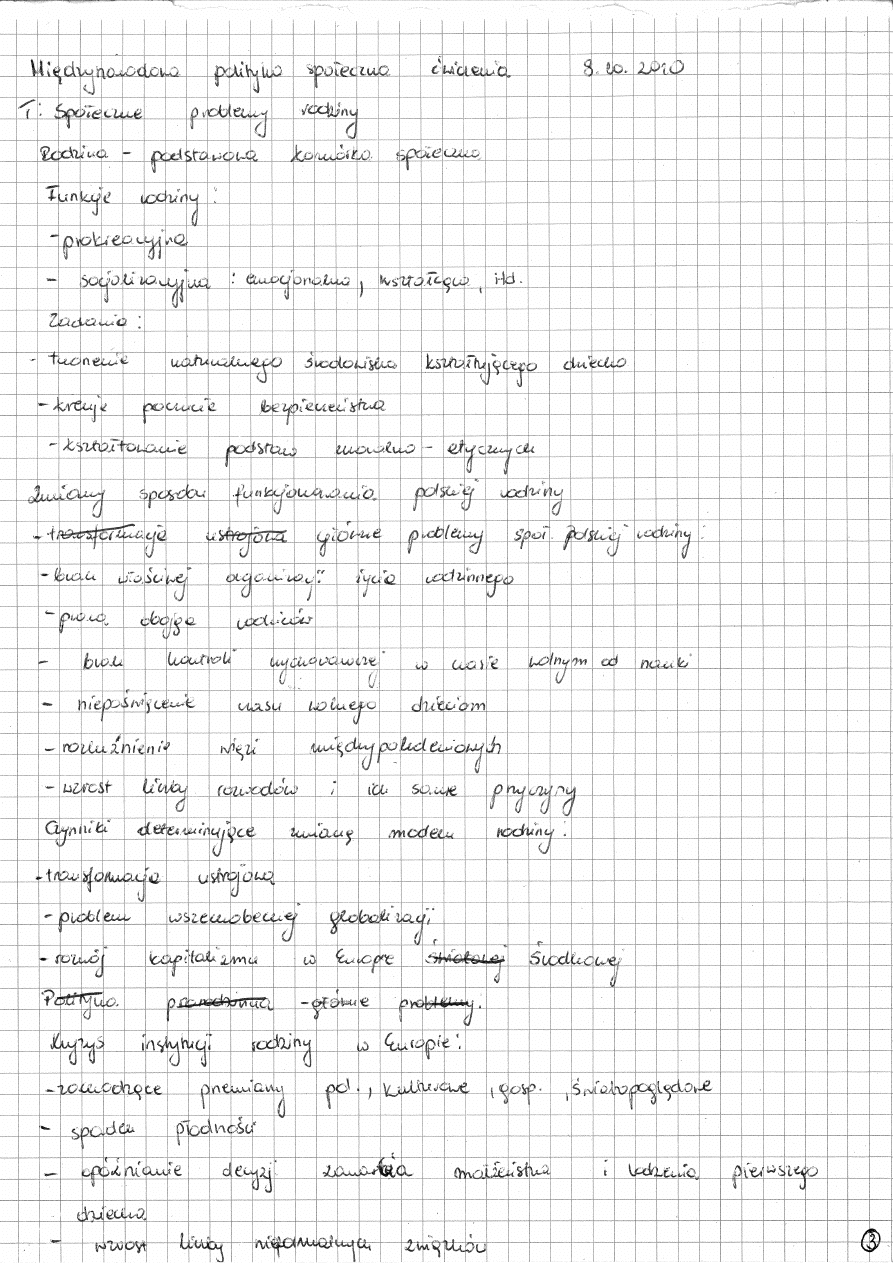 Międzynarodowa polityka społeczna ćwiczenia 8.10.2010
T: Społeczne problemy rodziny
Rodzina – podstawowa komórka społeczna
Funkcje rodziny:
- prokreacyjna
- socjalizacyjna : emocjonalna, kształcąca, itd.
Zadania:
- tworzenie naturalnego środowiska kształtującego dziecko
- kreuje poczucie bezpieczeństwa
- kształtowanie podstaw moralno – etycznych
Zmiany sposobu funkcjonowania polskiej rodziny
- transformacja ustrojowa główne problemy społ. polskiej rodziny:
- brak właściwej organizacji życia rodzinnego
- praca obojga rodziców
- brak kontroli wychowawczej w czasie wolnym od nauki
- niepoświęcenie czasu wolnego dzieciom
- rozluźnienie więzi międzypokoleniowych
- wzrost liczby rozwodów i ich same przyczyny
Czynniki determinujące zmianę modelu rodziny:
- transformacja ustrojowa
- problem wszechobecnej globalizacji
- rozwój kapitalizmu w Europie Światowej Środkowej
Polityka prorodzinna - główne problemy.
Kryzys instytucji rodziny w Europie:
- zachodzące przemiany pol., kulturowe, gosp., światopoglądowe
- spadek płodności
- opóźnianie decyzji zawarcia małżeństwa i rodzenia pierwszego
dziecka
- wzrost liczby nieformalnych związków
3